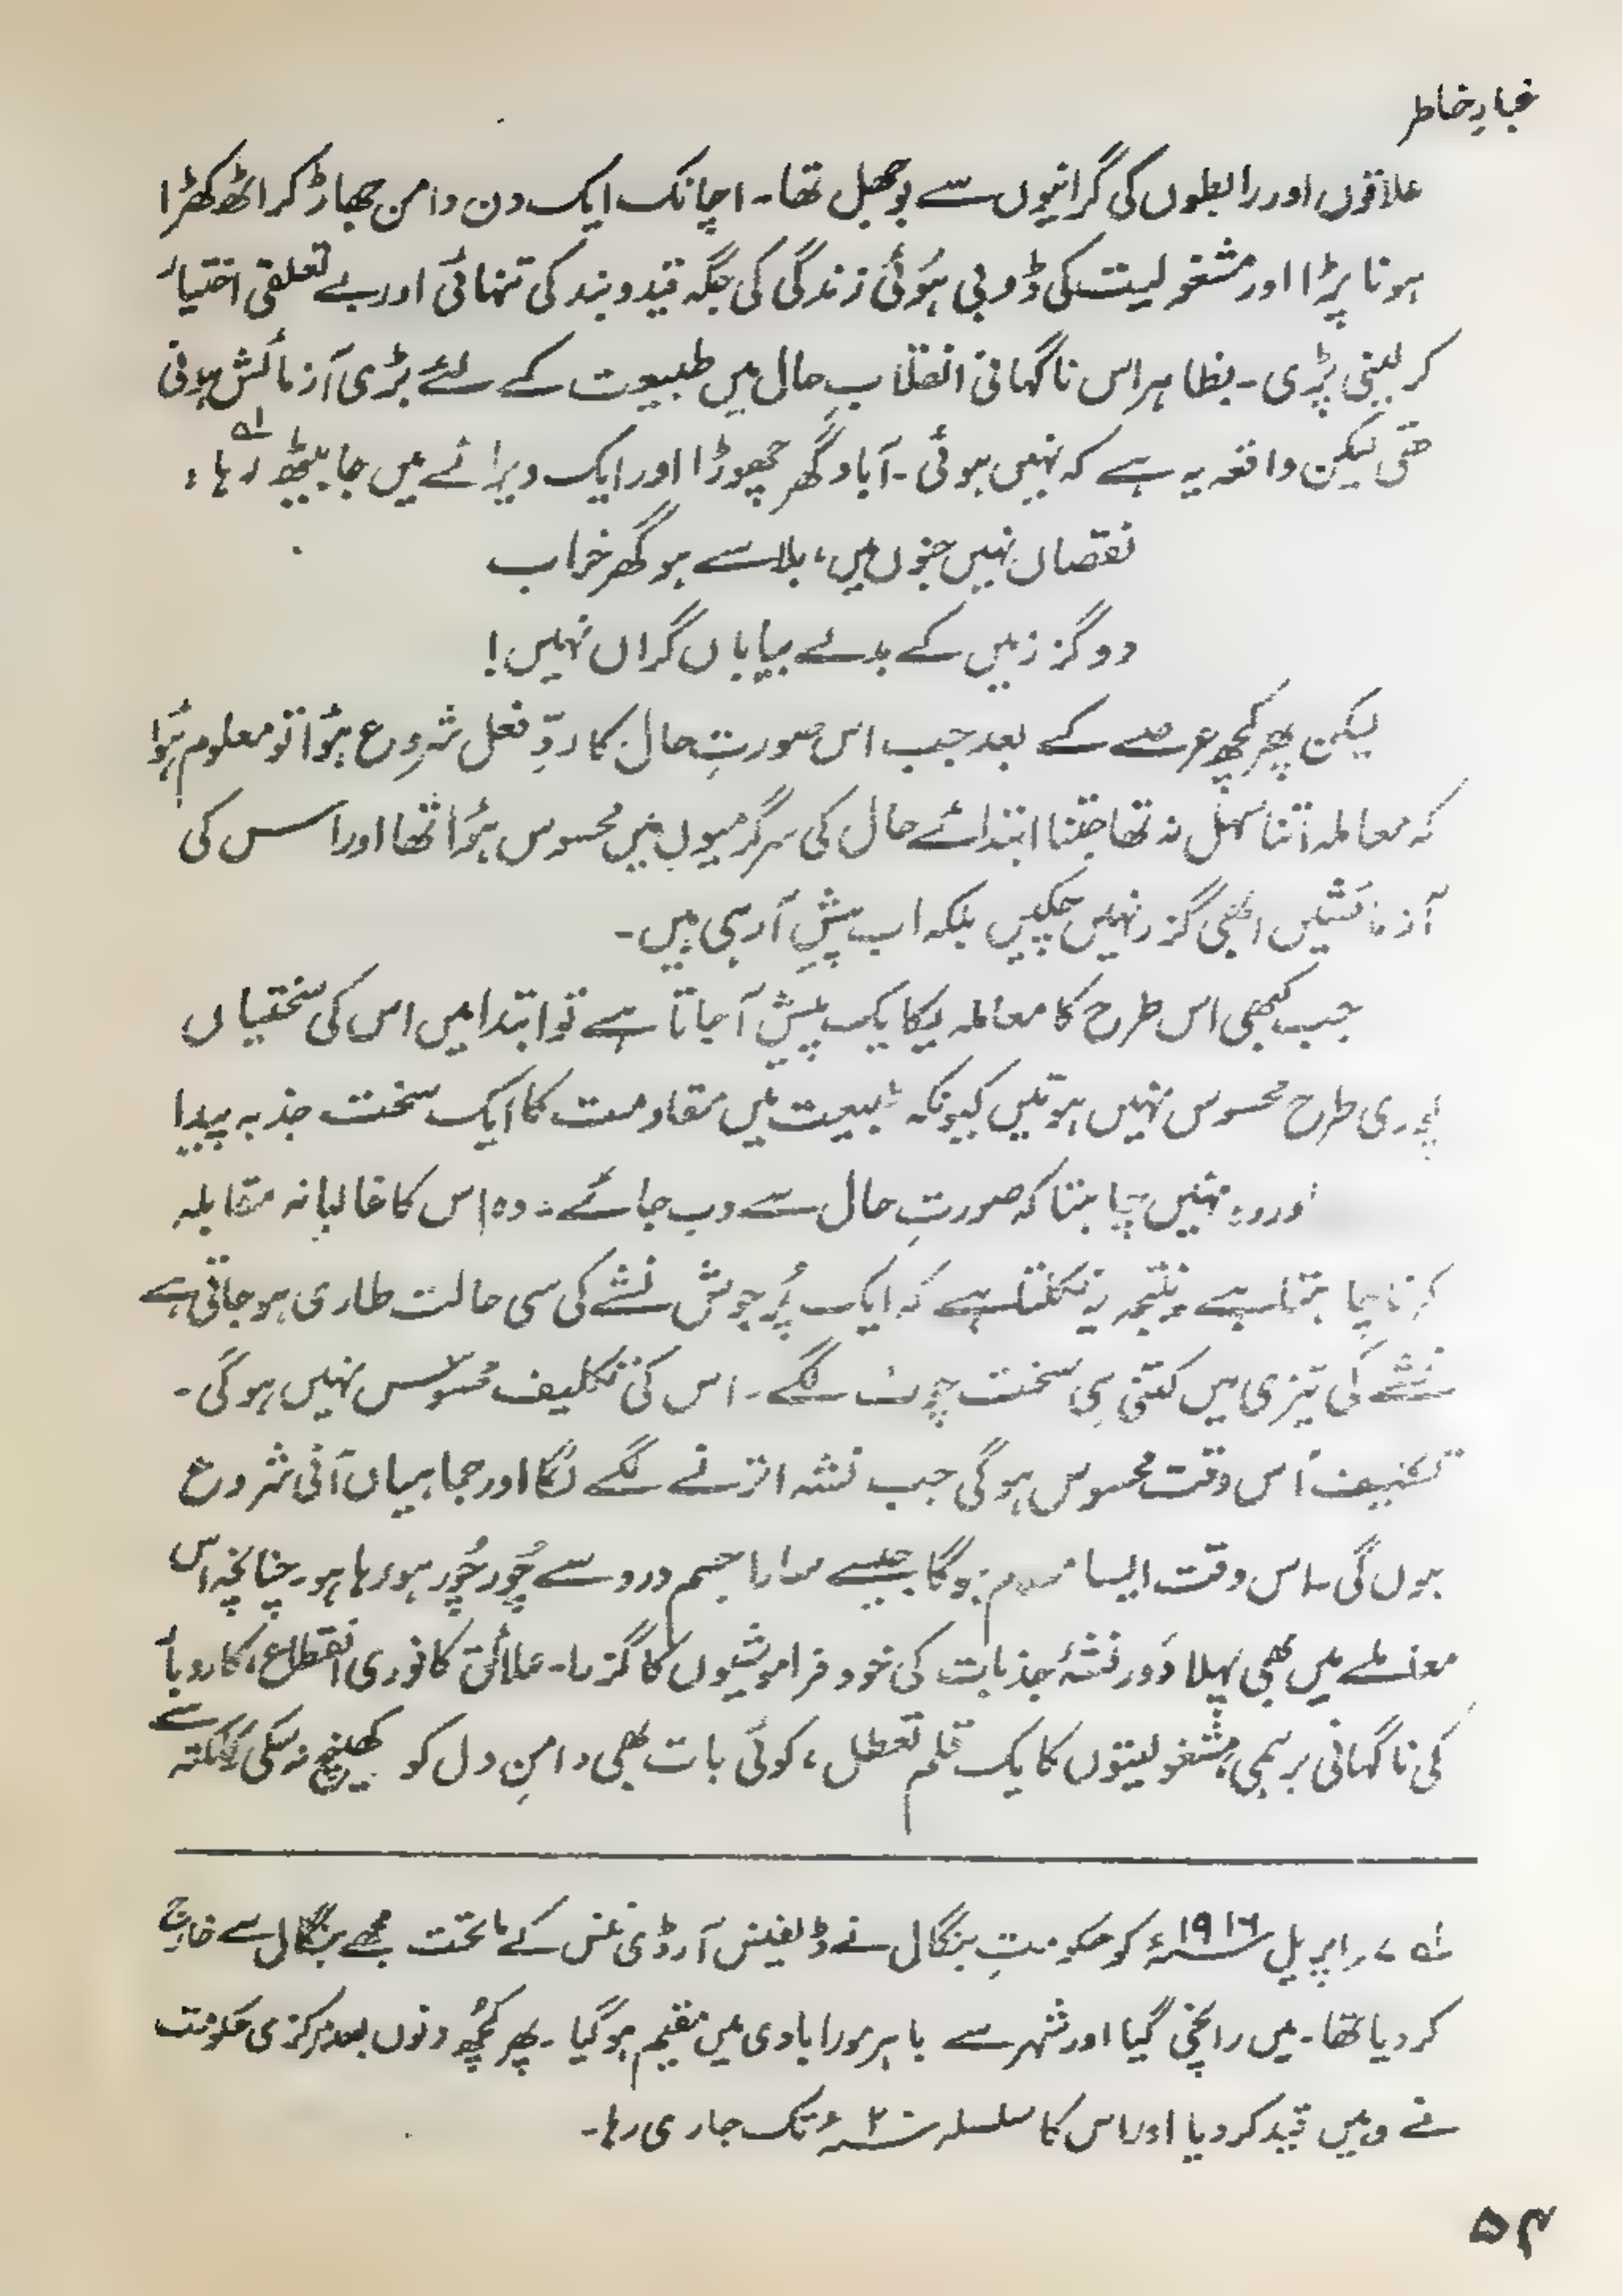 غبارِ خاطر
علاقوں اور رابطوں کی گرانیوں سے بوجھل تھا۔ اچانک ایک دن دامن جھاڑ کر اٹھ کھڑا
ہونا پڑا اور مشغولیت کی ڈوبی ہوئی زندگی کی جگہ قید و بند کی تنہائی اور بے تعلقی اختیار
کر لینی پڑی۔ بظاہر اس ناگہانی انقلابِ حال میں طبیعت کے لئے بڑی آزمائش ہونی
تھی لیکن واقعہ یہ ہے کہ نہیں ہوئی۔ آباد گھر چھوڑا اور ایک ویرانے میں جا بیٹھ رہا؛ ؎۱
نقصاں نہیں جنوں میں، بلا سے ہو گھر خراب
دو گز زمیں کے بدلے بیاباں گراں نہیں!
لیکن پھر کچھ عرصے کے بعد جب اس صورتِ حال کا ردِّ فعل شروع ہؤا تو معلوم ہؤا
کہ معاملہ اتنا سہل نہ تھا جتنا ابتدائے حال کی سرگرمیوں میں محسوس ہؤا تھا اور اس کی
آزمائشیں ابھی گزر نہیں چکیں بلکہ اب پیش آ رہی ہیں۔
جب کبھی اس طرح کا معاملہ یکایک پیش آ جاتا ہے تو ابتدا میں اس کی سختیاں
پوری طرح محسوس نہیں ہوتیں کیونکہ طبیعت میں مقاومت کا ایک سخت جذبہ پیدا
اور وہ نہیں چاہتا کہ صورتِ حال سے دب جائے۔ وہ اس کا غالبانہ مقابلہ
کرنا چاہتا ہے۔ نتیجہ یہ نکلتا ہے کہ ایک پُر جوش نشے کی سی حالت طاری ہو جاتی ہے
نشے کی تیزی میں کتنی ہی سخت چوٹ لگے۔ اس کی تکلیف محسوس نہیں ہو گی۔
تکلیف اُس وقت محسوس ہو گی جب نشہ اترنے لگے گا اور جماہیاں آنی شروع
ہوں گی۔ اس وقت ایسا معلوم ہو گا جیسے سارا جسم درد سے چُور چُور ہو رہا ہو۔ چنانچہ اس
معاملے میں بھی پہلا دَور نشۂ جذبات کی خود فراموشیوں کا گزرا۔ علائق کا فوری انقطاع، کاروبار
کی ناگہانی برہمی، مشغولیتوں کا یک قلم تعطل، کوئی بات بھی دامنِ دل کو کھینچ نہ سکی۔ کلکتہ سے
؎۱ ۷۔ اپریل ۱۹۱۶ء کو حکومتِ بنگال نے ڈیفینس آرڈی ننس کے ماتحت مجھے بنگال سے خارج
کر دیا تھا۔ میں رانچی گیا اور شہر سے باہر مورابادی میں مقیم ہو گیا۔ پھر کچھ دنوں بعد مرکزی حکومت
نے وہیں قید کر دیا اور اس کا سلسلہ ۲۰ء تک جاری رہا۔
۵۴